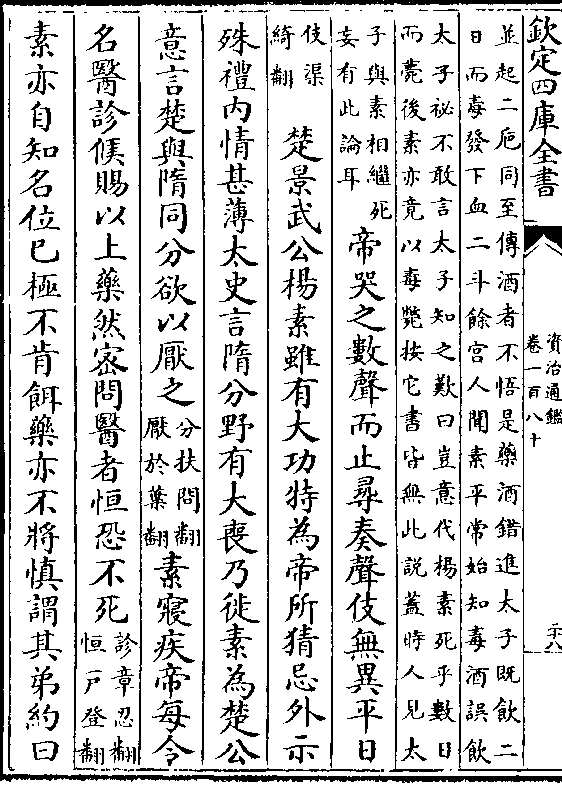 欽定四庫全書
資治通鑑
卷一百八十
二十八
並起二巵同至傳酒者不悟是藥酒錯進太子既飲二
日而毒發下血二斗餘宮人聞素平常始知毒酒誤飲
太子祕不敢言太子知之歎曰豈意代楊素死乎數日
而薨後素亦竟以毒斃按它書皆無此說蓋時人見太
子與素相繼死
妄有此論耳
帝哭之數聲而止尋奏聲伎無異平日
伎渠
綺翻
楚景武公楊素雖有大功特為帝所猜忌外示
殊禮內情甚薄太史言隋分野有大喪乃徙素為楚公
意言楚與隋同分欲以厭之
分扶問翻
厭於葉翻
素寢疾帝每令
名醫診候賜以上藥然密問醫者恒恐不死
診章忍翻
恒戸登翻
素亦自知名位已極不肯餌藥亦不將慎謂其弟約曰